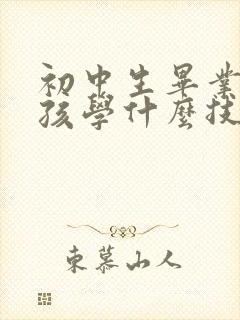 初中生畢業
孩學什麼技
東慕山人